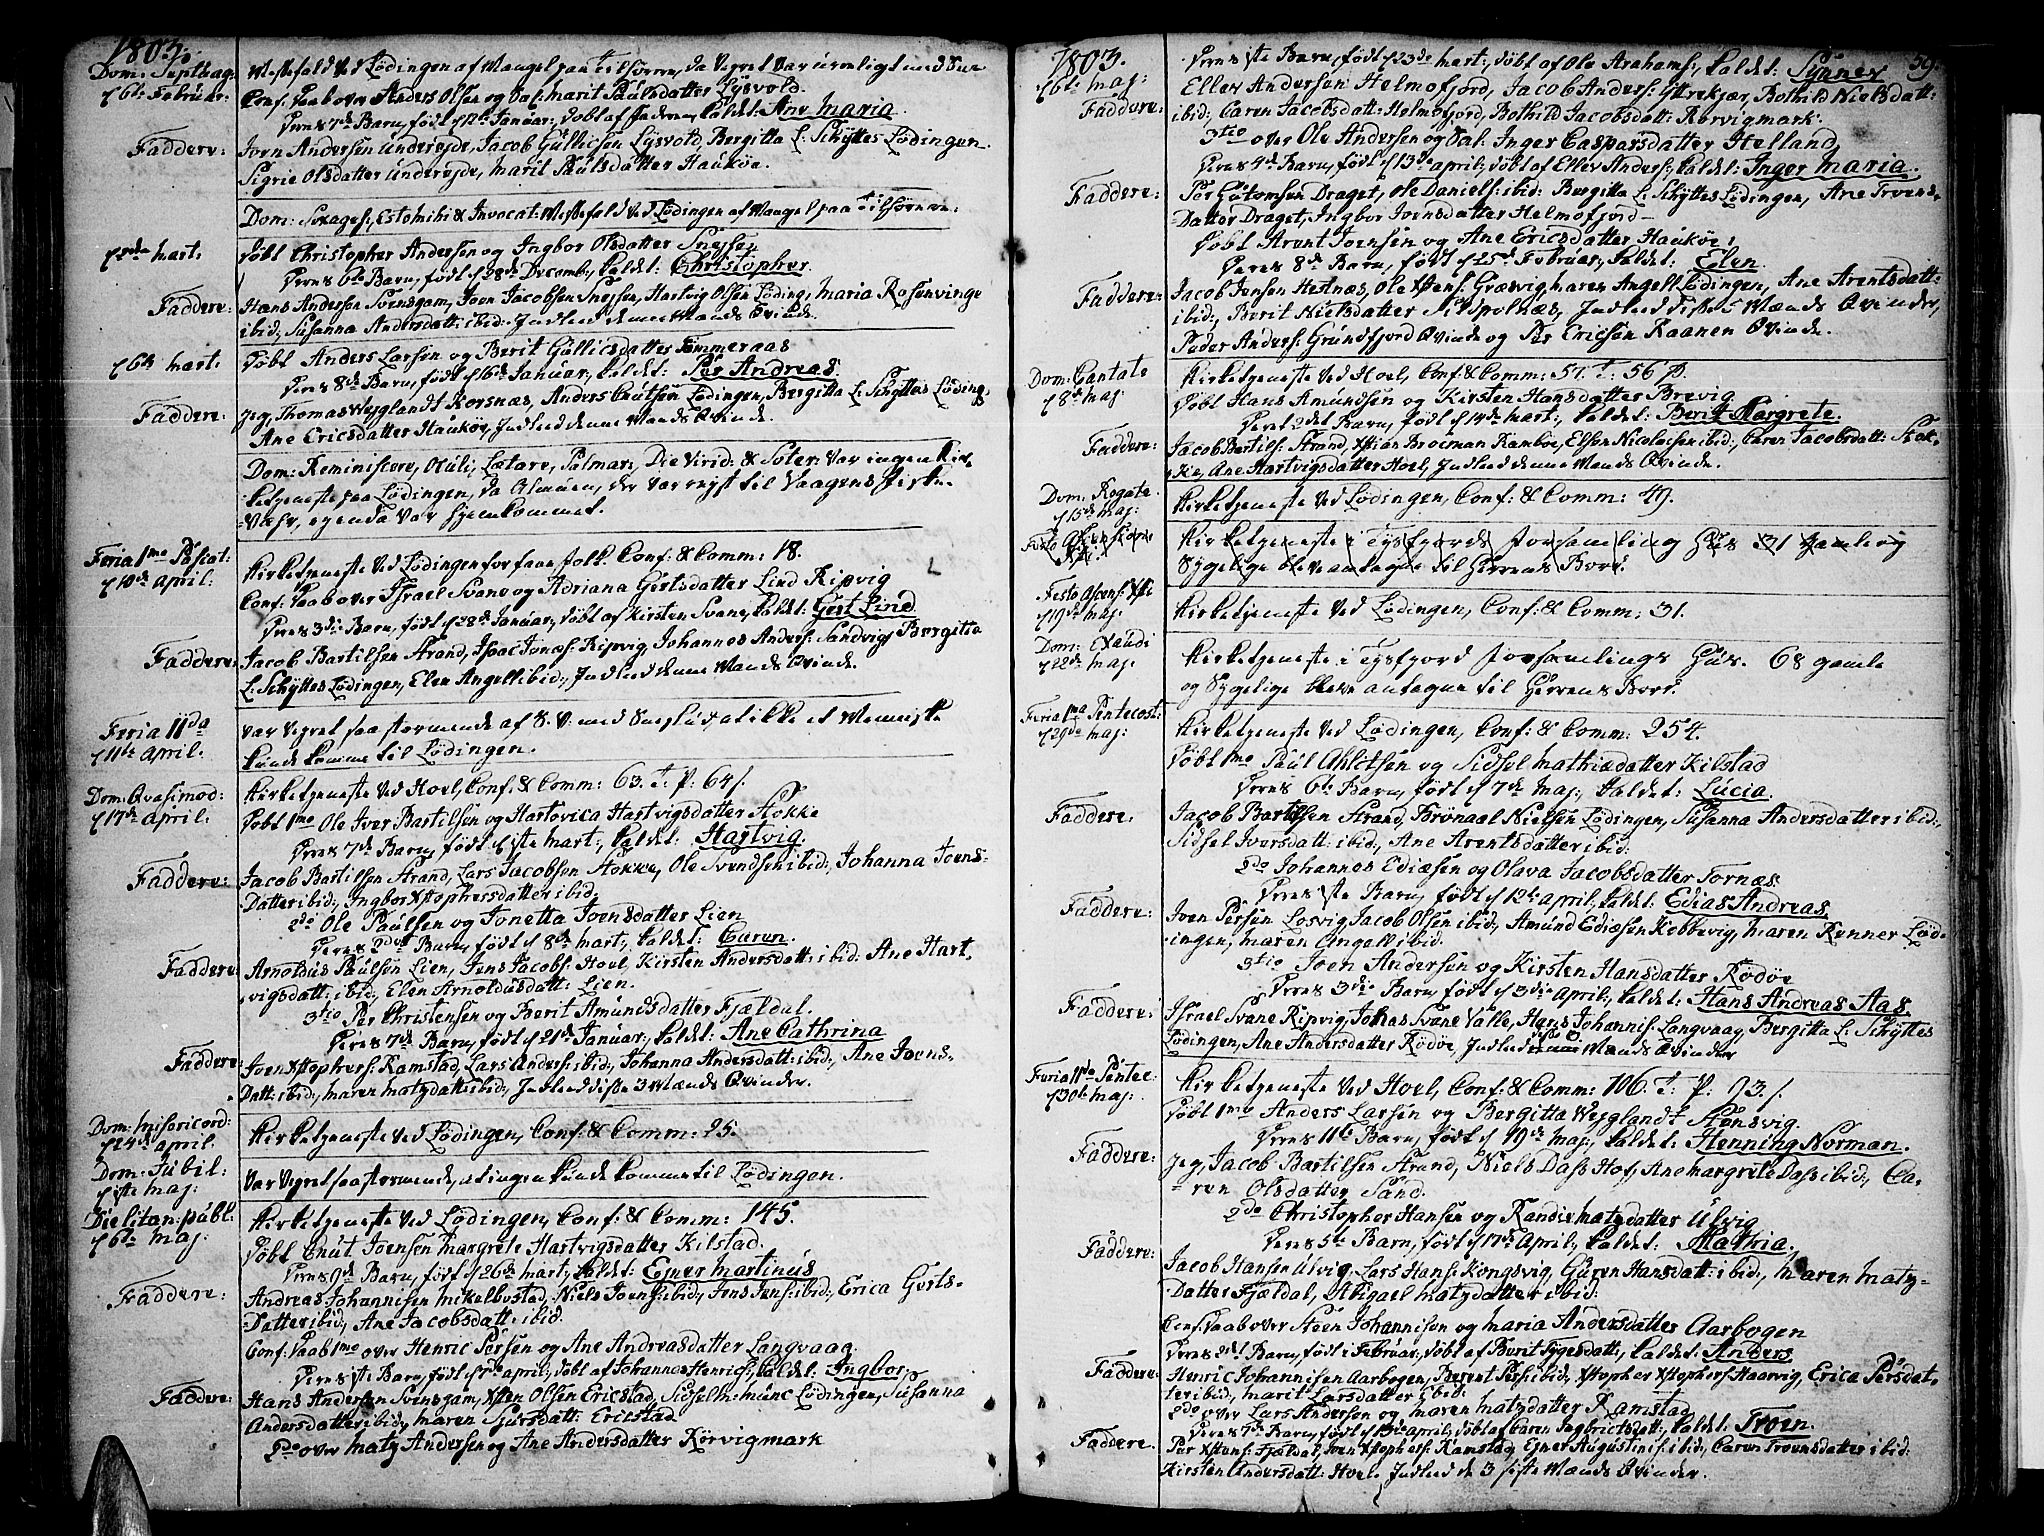 1803.
Dom: Septuag:
d 6te Februar.
Messefald ved Lødingen af Mangel paa Tilhørere, da Veyret var uroeligt med Snee
Conf: Daab over Anders Olsen og Dal: Marit Paulsdatter Lysvold
Deres 7de Barn, født d 12te Januar, døbt af Faderen, kaldet: Ane Maria.
Faddere: Joen Andersen Underejde, Jacob Gullicsen Lysvold, Bergitta L: Schyttes Lødingen
Sigrie Olsdatter Underejde, Marit Paulsdatter Haukøe.
Dom: Sexages:, Estomihi & Invocat: Messefald ved Lødingen af Mangel paa Tilhørere.
hart.
Døbt Christopher Andersen og Ingbor Olsdatter Snejsen
Deres 6te Barn, født d 28de Decemb:, kaldet: Christopher.
Faddere: Hans Andersen Svensgam, Joen Jacobsen Snejsen, Hartvig Olsen Løding:, Maria Rosenvinge
ibid:, Susanna Andersdatt: ibid: Indleed denne Mands Qvinde.
d 6te hart.
Døbt Anders Larsen og Berit Gullicsdatter Tømmeraas
Deres 8de Barn, født d 16de Januar, kaldet: Per Andreas.
Faddere: Jeg, Thomas Weyglandt Korsnæs, Anders Cnutsen Lødingen, Bergitta L: Schyttes Løding:
Ane Ericsdatter Haukøe, Indleed denne Mands Qvinde.
Dom: Reminiscere, Oculi, Lætare, Palmar:, Die Virid: & Soter: var ingen Kir-
ketjeneste paa Lødingen, da Almuen, der var reyst til Vaagens Fiske-
-Vær, ey enda var hjemkommet.
Feria 1ma Pascat:
d 10de April:
Kirketjeneste ved Lødingen for faae folk. Conf: & Comm: 18.
Conf: Daab over Israel Svane og Adriana Gertsdatter Lind Ripvig
Deres 3die Barn, født d 28de Januar, døbt af Kirsten Svane, kaldet: Gert Lind.
Faddere: Jacob Bartilsen Strand, Isac Jonæs: Ripvig, Johannes Anders: Sandvig, Bergitta
L: Schyttes Lødingen, Elen Angell ibid:, Indleed denne Mands Qvinde.
Feria 11da
d 11te April.
var Veyret saa stormende af S. V: med Sneslud, at ikke et Menneske
kunde komme til Lødingen.
Dom: Qvasimod:
d 17de April.
Kirketjeneste ved Hoel, Conf: & Comm: 63. T. P: 64 s.
Døbt 1mo Ole Iver Bartilsen og Hartvica Hartvigsdatter Stokke
Deres 7de Barn, født d 1ste hart:, kaldet: Hartvig.
Faddere: Jacob Bartilsen Strand, Lars Jacobsen Stokke, Ole Svendsen ibid:, Johanna Joens-
Datter ibid:, Ingbor Xstophersdatter ibid:
2do Ole Paulsen og Jonetta Joensdatter Lien
Deres 2det Barn, født d 8de hart:, kaldet: Guren.
Faddere: Arnoldus Paulsen Lien, Jens Jacobs: Hoel, Kirsten Andersdatt: ibid: Ane Hart-
vigsdatt: ibid:, Elen Arnoldusdatt: Lien.
3tio Per Christensen og Berit Amundsdatter Fjældal.
Deres 7de Barn, født d 21de Januar:, kaldet: Ane Cathrina
Faddere: Joen Xstophers: Ramstad, Lars Anders: ibid:, Johanna Andersdatt: ibid:, Ane Joens-
Datt: ibid:, Maren Matzdatt: ibid:, Indleed disse 3 Mænds Qvinder.
Dom: Misericord:
d 24de April.
Kirketjeneste ved Lødingen, Conf: & Comm: 25.
Dom: Jubil:
d 1ste Maj:
var Veyret saa stormende, at ingen kunde komme til Lødingen.
Die litan: publ:
d 6te Maj:
Kirketjeneste ved Lødingen, Conf: & Comm: 145.
Døbt Cnut Joensen Margrete Hartvigsdatter Kilstad.
Deres 9de Barn, født d 26de hart:, kaldet: Ejner Martinus
Faddere: Andreas Johannisen Mikelbostad, Niels Joens: ibid:, Jens Jens: ibid:, Erica Gerts-
Datter ibid:, Ane Jacobsdatt: ibid:
Conf: Daab 1mo over Henric Persen og Ane Andreasdatter Langvaag.
Deres 1ste Barn, født d 7de April:, døbt af Johannes Henrics:, kaldet: Ingbor,
Faddere: Hans Andersen Svensgam, Xsten Olsen Ericstad, Sidsel M: Munc Lødingen, Susanna
Andersdatter ibid:, Maren Sjursdatt: Ericstad.
2do over Matz Andersen og Ane Andersdatter Kørvigmark
1803.
59.
d 6te Maj:
Deres 1ste Barn, født d 23de hart:, døbt af Ole Arahams:, kaldet: Synnev
Faddere: Ellev Andersen Helmofjord, Jacob Anders: Yttrekjær, Bothild Nielsdatt:
ibid:, Caren Jacobsdatt: Helmofjord, Bothild Jacobsdatt: Kørvigmark.
3tio over Ole Andersen og Dal: Inger Caspersdatter Helland,
Deres 4de Barn, født d 13de April:, døbt af Ellev Anders:, kaldet: Inger Maria.
Faddere: Per Gutomsen Draget, Ole Daniels: ibid: Bergitta L: Schyttes Lødingen, Ane Troens-
Datter Draget, Ingbor Joensdatter Helmofjord
Døbt Arent Joensen og Ane Ericsdatter Haukøe,
Deres 8de Barn, født d 25de Februar:, kaldet: Elen.
Faddere: Jacob Jensen Hestnæs, Ole Xstens: Græsvig, Maren Angell Lødingen, Ane Arentsdatt:
ibid:, Berit Nielsdatter Sildpolnæs, Indleed disse Mænds Qvinder,
Peder Anders: Grundfjord Qvinde og Per Ericsen Kaanen Qvinde.
Dom: Cantate
d 8de Maj:
Kirketjeneste ved Hoel, Conf: & Comm: 57. T. 56 p.
Døbt Hans Amundsen og Kirsten Hansdatter Brevig
Deres 2det Barn, født d 14de hart:, kaldet: Berit Margrete.
Faddere: Jacob Bartils: Strand, Xstian Brocman Rambøe, Elsen Nicolaisen ibid:, Caren Jacobsdatt: Stok-
ke, Ane Hartvigsdatter Hoel, Indleed denne Mands Qvinde.
Dom: Rogate
d 15de Maj:
Kirketjeneste ved Lødingen, Conf: & Comm: 49.
Kirketjeneste i Tysfjords Forsamling Huus 31 Gamle og
Sygelige bleve antagne til Herrens Bord.
Festo Ascens: Xsti
d 19de Maj:
Kirketjeneste ved Lødingen, Conf: & Comm: 31.
Dom: Exaudi
d 22de Maj:
Kirketjeneste i Tysfjord Forsamlings Huus. 68 gamle
og Sygelige bleve antagne til Herrens Bord.
Feria 1ma Pentecost:
d 29de Maj:
Kirketjeneste ved Lødingen, Conf: & Comm: 254.
Døbt 1mo Paul Ahletsen og Sidsel Mathiædatter Kilstad
Deres 6te Barn, født d 7de Maj:, kaldet: Lucia.
Faddere: Jacob Bartilsen Strand, Brønael Nielsen Lødingen, Susanna Andersdatter ibid:,
Sidsel Iversdatt: ibid:, Ane Arentsdatter ibid:
2do Johannes Ediæsen og Olava Jacobsdatter Tornæs.
Deres 1ste Barn, født d 12te April, kaldet: Edias Andreas.
Faddere: Joen Persen Losvig, Jacob Olsen ibid:, Amund Ediæsen Kobbevig, Maren Renner Lød-
ingen, Maren Angell ibid:
3tio Joen Andersen og Kirsten Hansdatter Rødøe
Deres 3die Barn, født d 3die April:, kaldet: Hans Andreas Aas.
Faddere: Israel Svane Ripvig, Johas Svane Valle, Hans Johannis: Langvaag, Bergitta L: Schyttes
Lødingen, Ane Andersdatter Rødøe, Indleed disse Mænds Qvinder
Feria 11da Pentec:
d 30te Maj:
Kirketjeneste ved Hoel, Conf: & Comm: 106. T. P. 93. s.
Døbt 1mo Anders Larsen og Bergitta Weyglandt Stensvig.
Deres 11te Barn, født d 19de Maj:, kaldet: Henning Norman.
Faddere: Jeg, Jacob Bartilsen Strand, Niels Dass Hof, Ane Margrete Dass ibid:, Ca-
ren Olsdatter Sand.
2do Christopher Hansen og Randi Matzdatter Ulvig
Deres 5te Barn, født d 17de April:, kaldet: Mathia,
Faddere: Jacob Hansen Ulvig, Lars Hans: Kongsvig, Guren Hansdatt: ibid:, Maren Matz-
Datter Fjældal, Abigael Matzdatter ibid:
Conf: Daab over Steen Johannisen og Maria Andersdatter Aarbogen
Deres 2det Barn, født i Februar, døbt af Berit Tygesdatt:, kaldet: Anders
Faddere: Henric Johannisen Aarbogen, Berent Pers: ibid:, Xstopher Xstophers: Haarvig, Erica Persdat-
ter ibid:, Marit Larsdatter ibid:
2do over Lars Andersen og Maren Matzdatter Ramstad
Deres 7de Barn, født d 13de April, døbt af Caren Ingbrictsdatt:, kaldet: Troen.
Faddere. Per Xstens: Fjældal, Joen Xstophers: Ramstad, Ejner Augustinis: ibid:, Caren Troensdatter ibid:
Kirsten Andersdatt: Hoel. Indleed de 3 siste Mænds Qvinder.